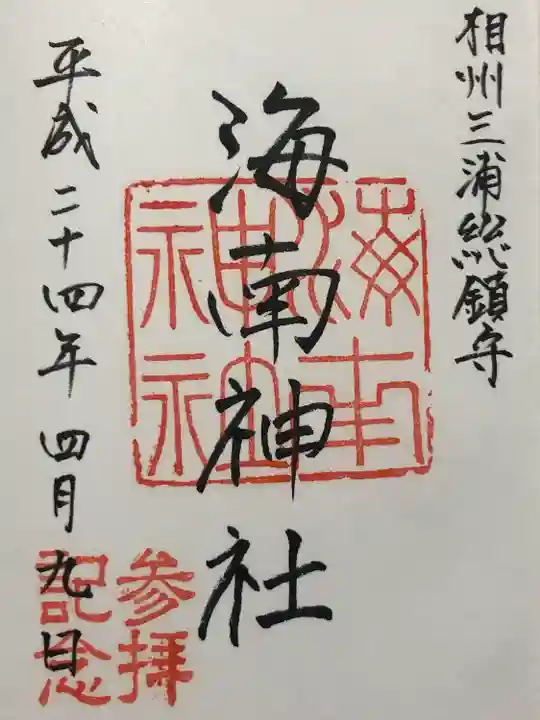 相州三浦総鎮守
海南神社
海南神社
参拝記念
平成二十四年 四月九日